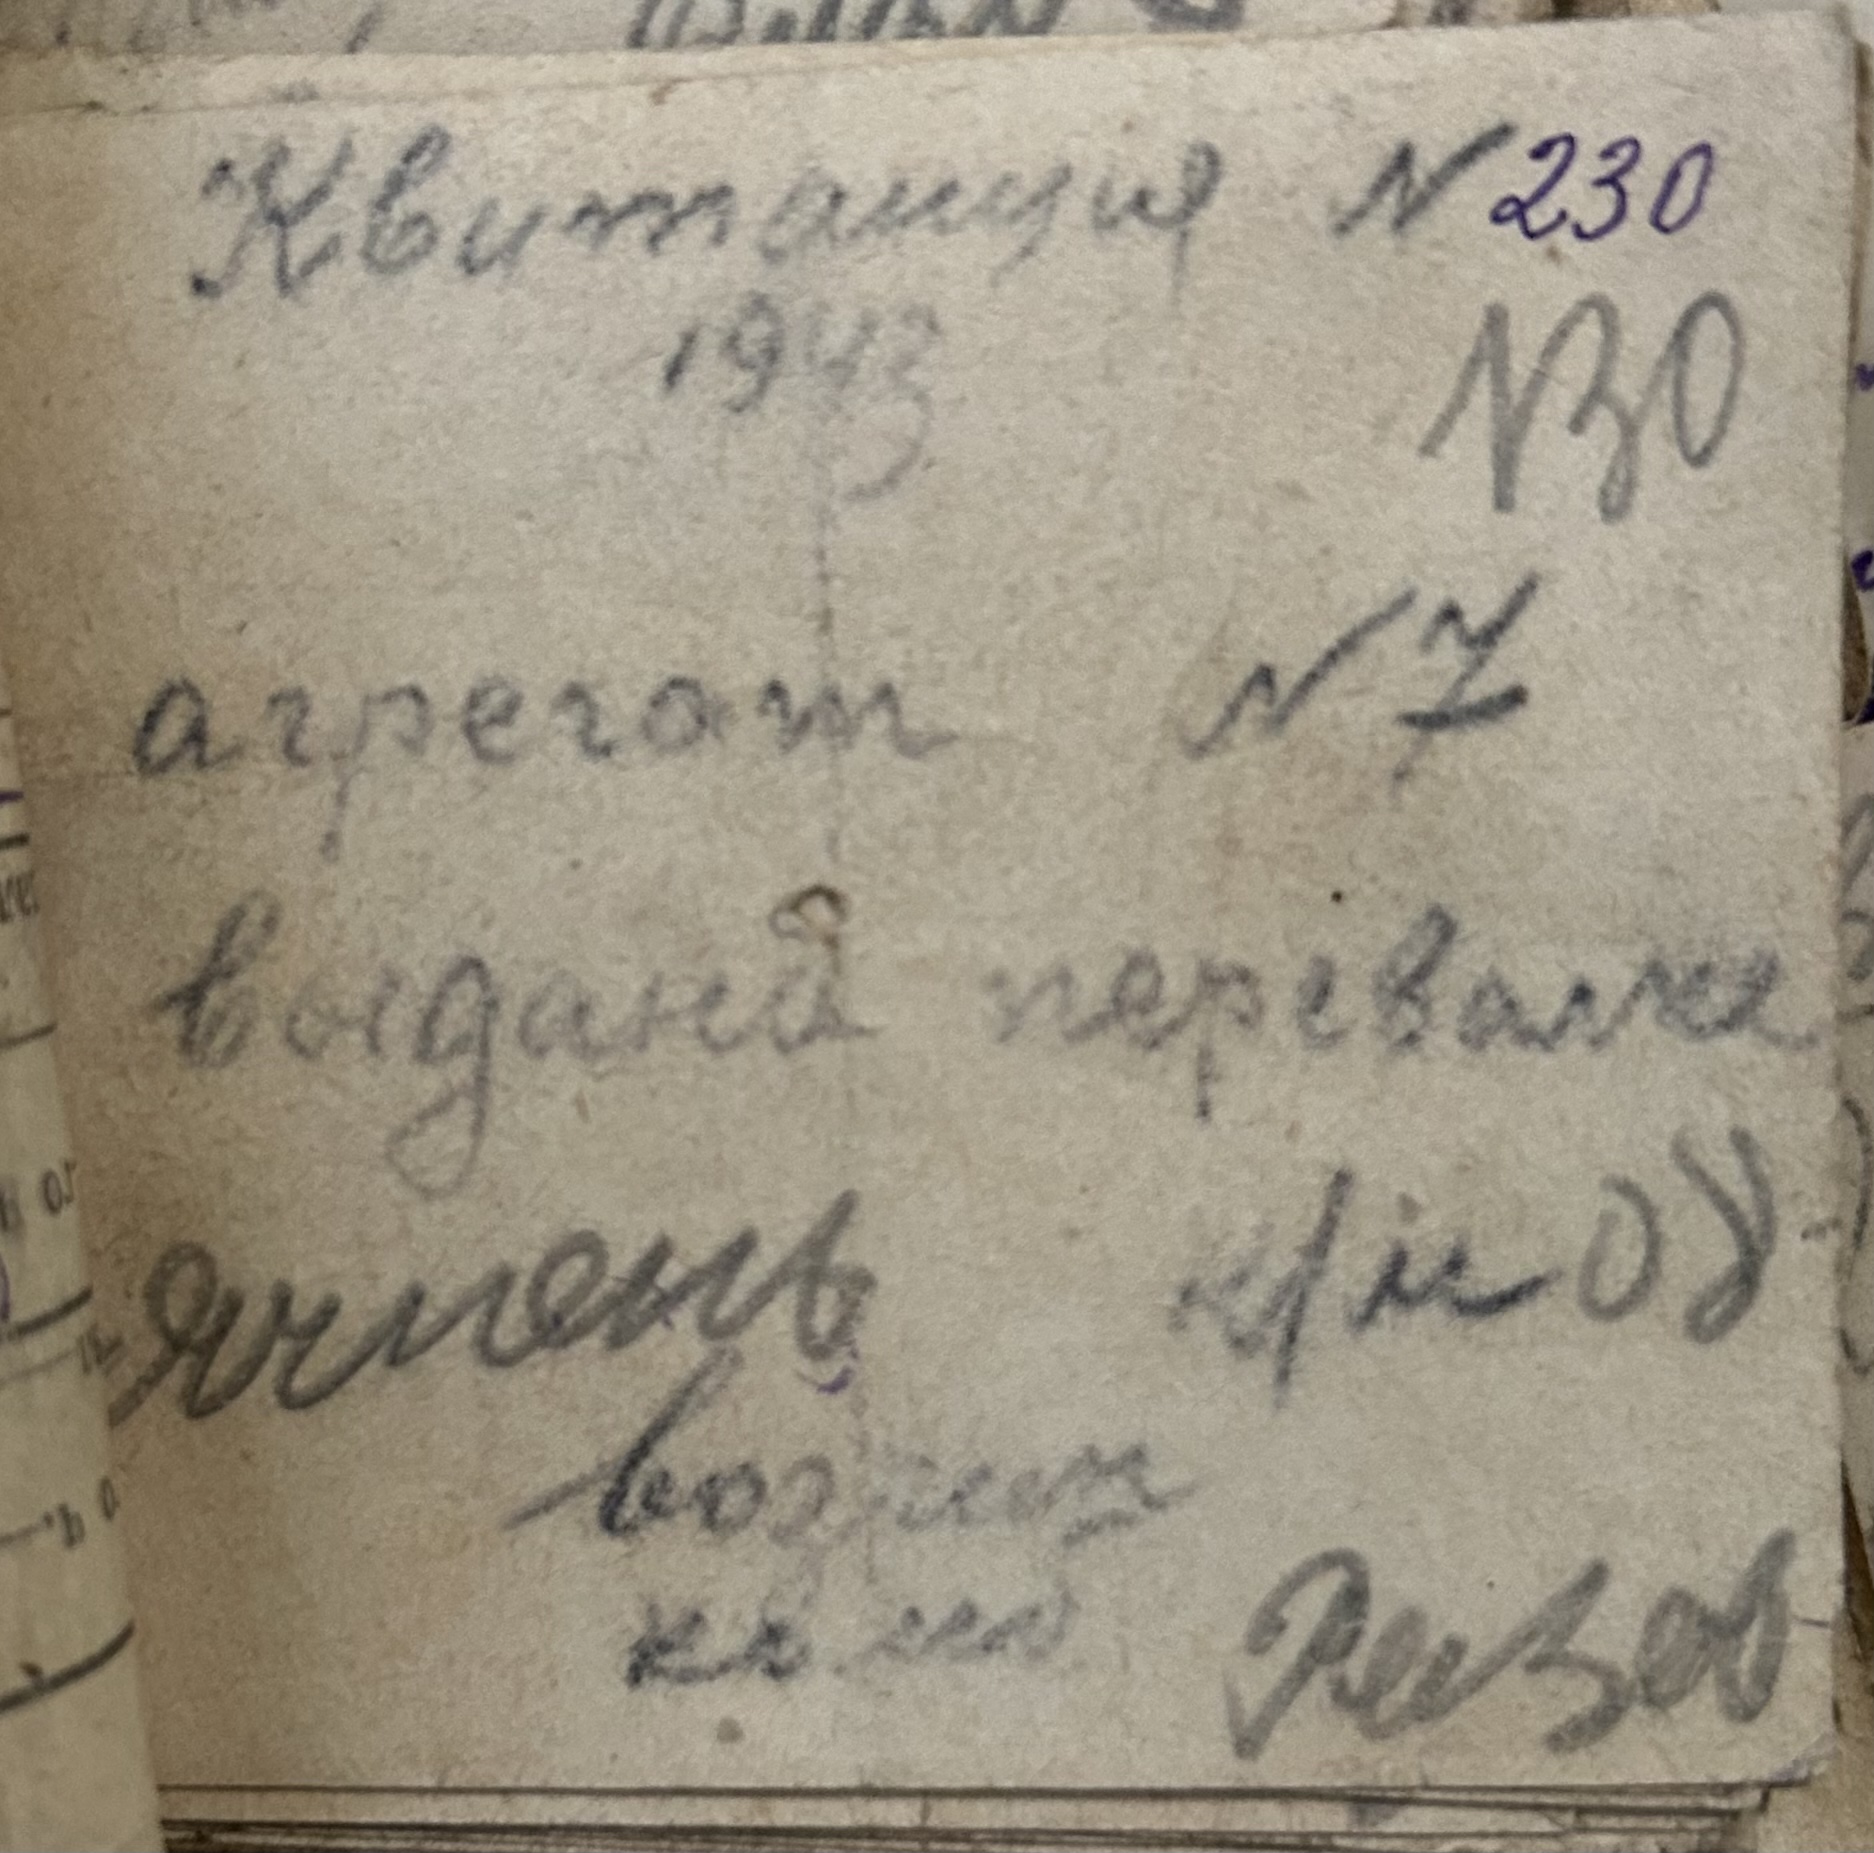 Квитанция N 230
1943
N30
агрегат N 7
выдана перевалка
ячмень 08
возчик
Резов